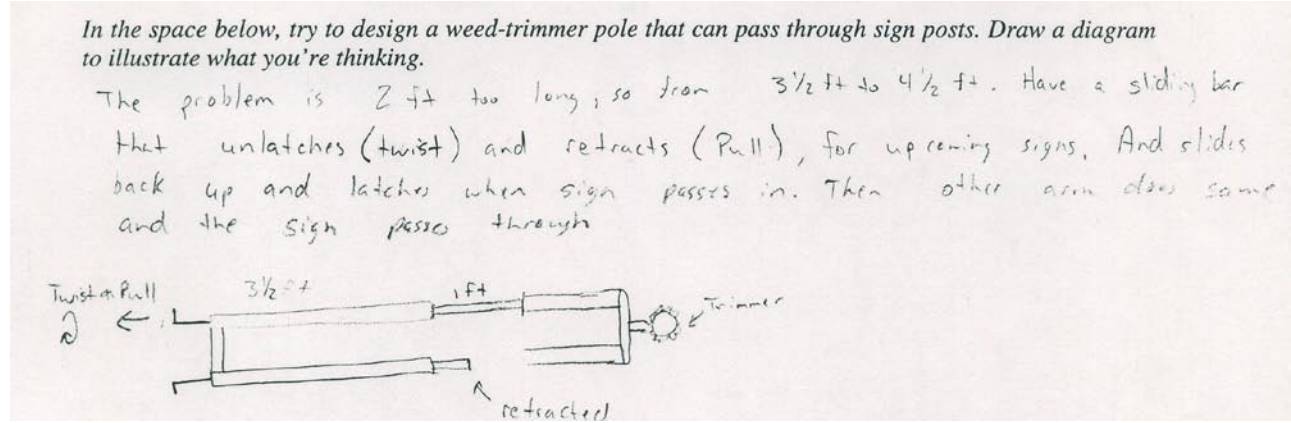 In the space below, try to design a weed-trimmer pole that can pass through sign posts. Draw a diagram
to illustrate what you're thinking.
The problem is 2 ft too long, so from 3½ ft to 4½ ft. Have a sliding bar
that unlatches (twist) and retracts (Pull), for upcoming signs, And slides
back up and latches when sign passes in. Then other arm does same
and the sign passes through
Twist & Pull
3½ ft
1 ft
Trimmer
retracted